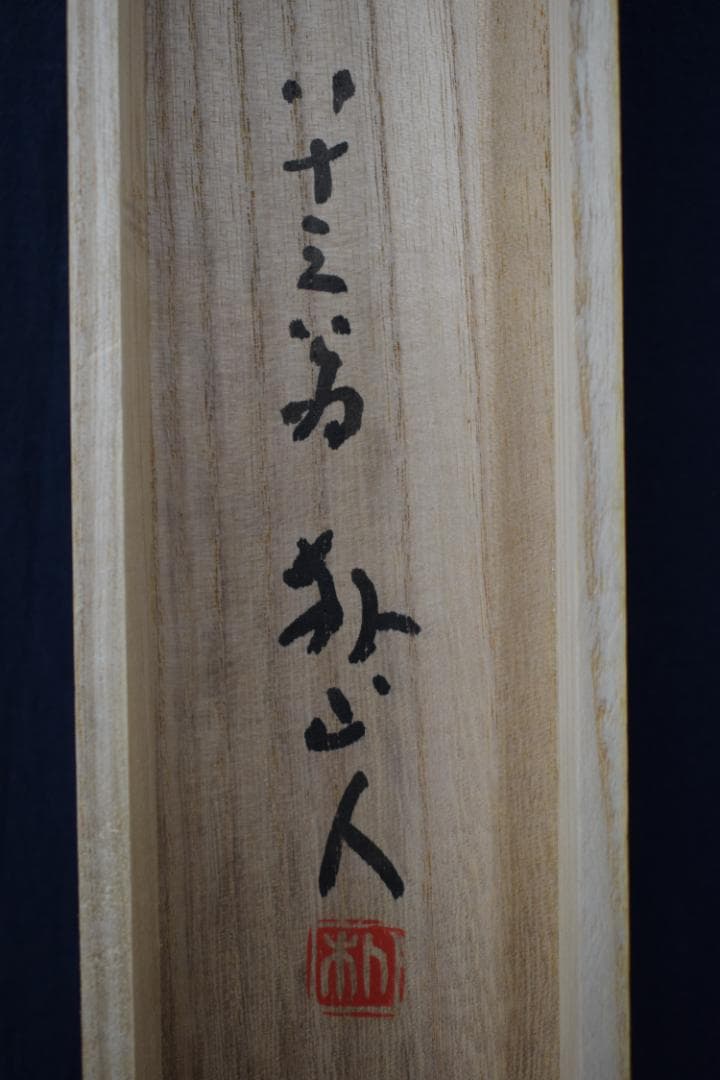 八十三翁 朴山人
朴